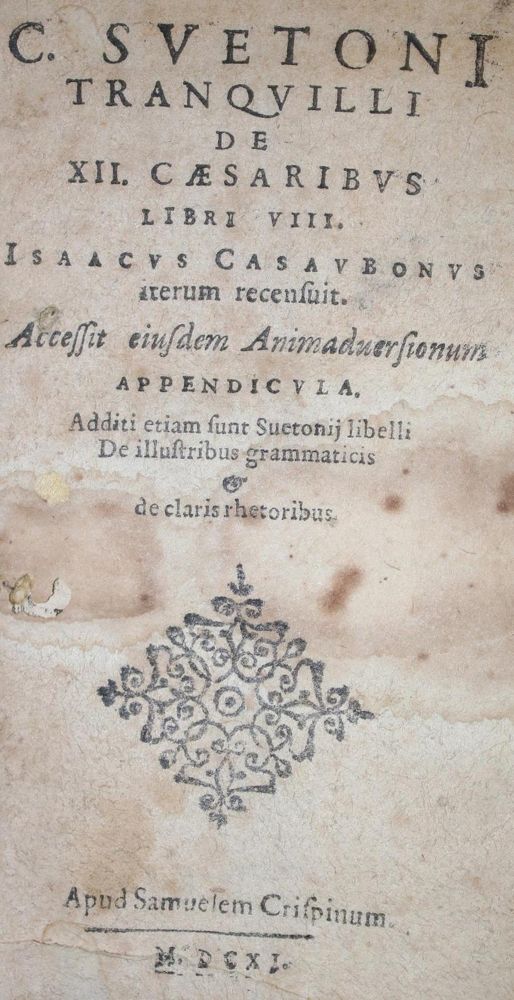 C. SVETONI
TRANQVILLI
DE
XII. CÆSARIBVS
LIBRI VIII.
ISAACVS CASAVBONVS
iterum recenſuit.
Acceſſit eiuſdem Animaduerſionum
APPENDICVLA.
Additi etiam ſunt Suetonij libelli
De illuſtribus grammaticis
&
de claris rhetoribus.
Apud Samuelem Criſpinum.
M. DCXI.